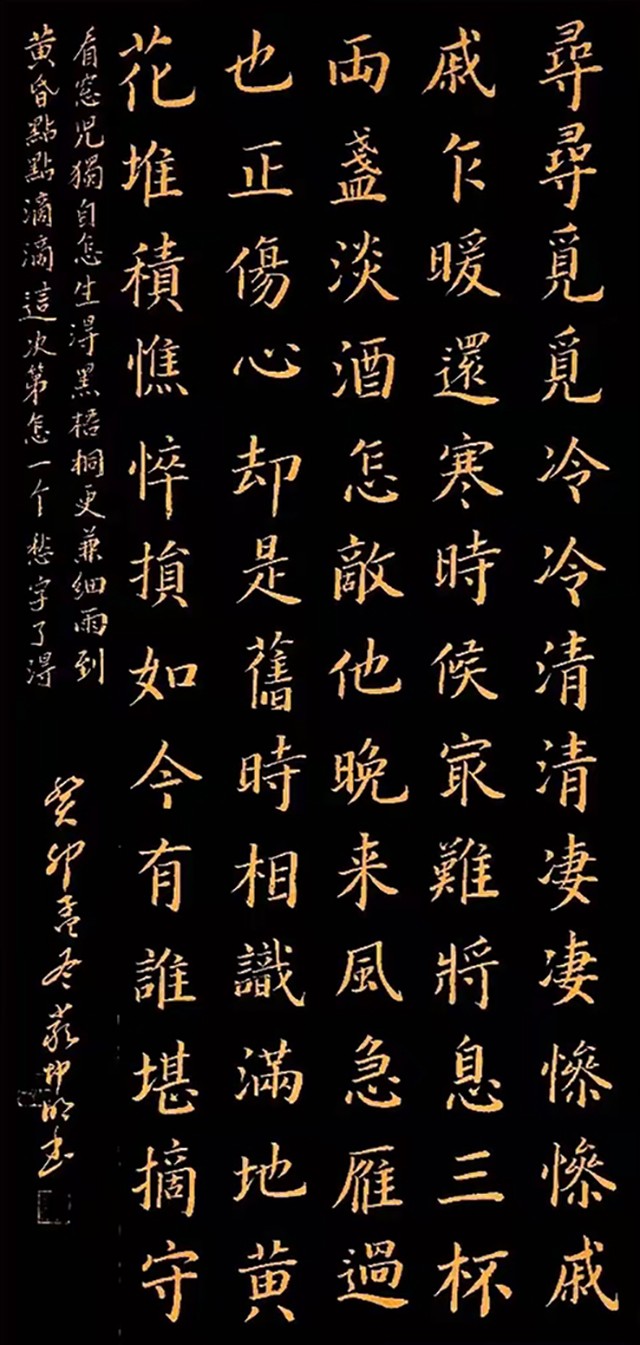 尋尋覓覓冷冷清清凄凄慘慘戚
戚乍暖還寒時候㝡難將息三杯
両盞淡酒怎敵他晚来風急雁過
也正傷心却是舊時相識滿地黄
花堆積憔悴損如今有誰堪摘守
看窓児獨自怎生得黑梧桐更兼細雨到
黄昏點點滴滴這次第怎一个愁字了得
癸卯孟冬坤明书